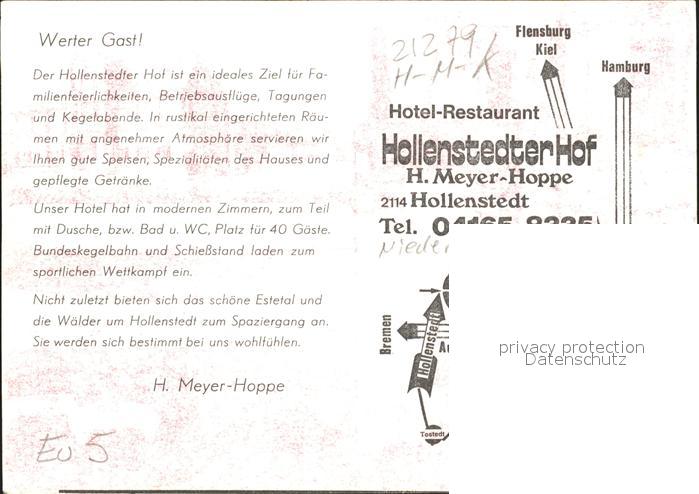 Werter Gast!
Der Hollenstedter Hof ist ein ideales Ziel für Fa-
milienfeierlichkeiten, Betriebsausflüge, Tagungen
und Kegelabende. In rustikal eingerichteten Räu-
men mit angenehmer Atmosphäre servieren wir
Ihnen gute Speisen, Spezialitäten des Hauses und
gepflegte Getränke.
Unser Hotel hat in modernen Zimmern, zum Teil
mit Dusche, bzw. Bad u. WC, Platz für 40 Gäste.
Bundeskegelbahn und Schießstand laden zum
sportlichen Wettkampf ein.
Nicht zuletzt bieten sich das schöne Estetal und
die Wälder um Hollenstedt zum Spaziergang an.
Sie werden sich bestimmt bei uns wohlfühlen.
H. Meyer-Hoppe
Eu 5
21279
H-M-K
Flensburg
Kiel
Hamburg
Hotel-Restaurant
Hollenstedter Hof
H. Meyer-Hoppe
2114 Hollenstedt
Tel. 04165-8335
Nieder
Bremen
Hollenstedt
Au
Tostedt
privacy protection
Datenschutz